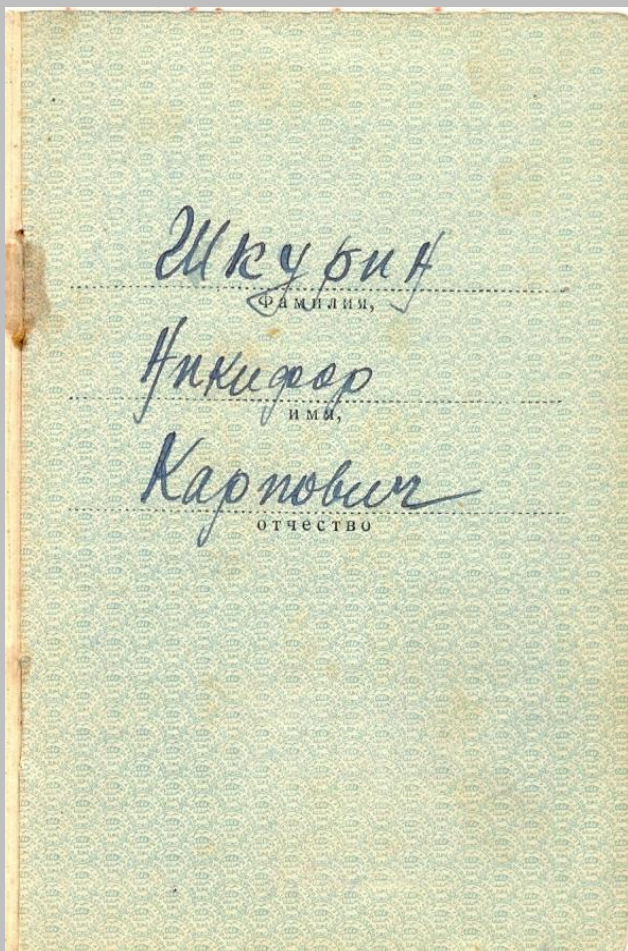 Шкурин
Фамилия,
Никифор
имя,
Карпович
отчество